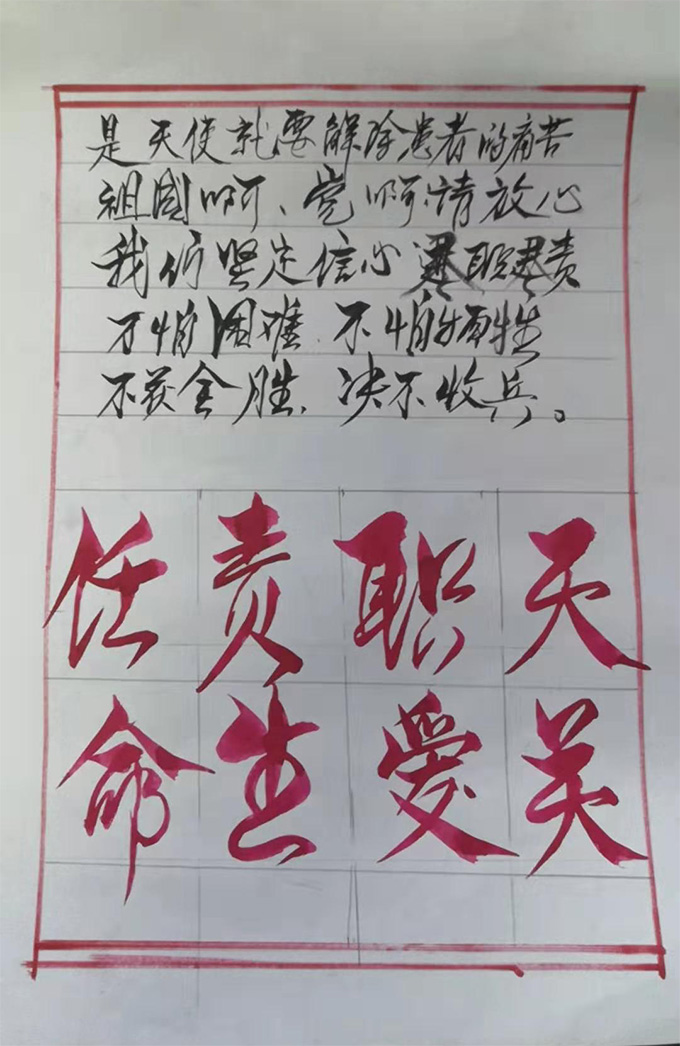 是天使就要解除患者的痛苦
祖国啊、党啊请放心
我们坚定信心尽职尽责
不怕困难.不怕牺牲
不获全胜.决不收兵。
天职责任
关愛生命